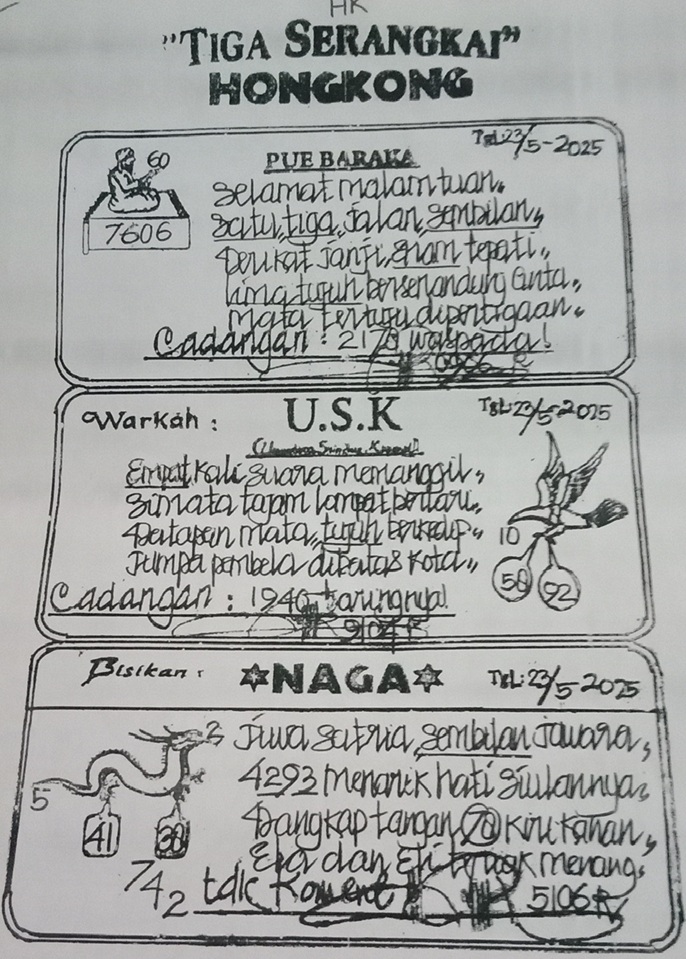 HK
"TIGA SERANGKAI"
HONGKONG
TGL: 23/5-2025
60
7606
PUE BARAKA
Selamat malam tuan,
Satu, tiga, jalan, sembilan,
janji, enam tepati,
lima tujuh bersenandung cinta,
Mata tertuju dipertigaan.
Cadangan : 2170 waspada!
Warkah :
U.S.K
TGL: 23/5-2025
Empat kali suara memanggil,
Simata tajam lompat
Tatapan mata, tujuh berkedip,
Jumpa pembela dibatas kota,
10
50
92
Cadangan : 1940 tarungnya!
Bisikan :
NAGA
TGL: 23/5-2025
Jiwa satria, sembilan jawara,
4293 menarik hati siulannya,
Tangkap tangan 70 kiri kanan,
Ela dan Eli menang,
3
5
41
30
742
tdk Koment
5106 R